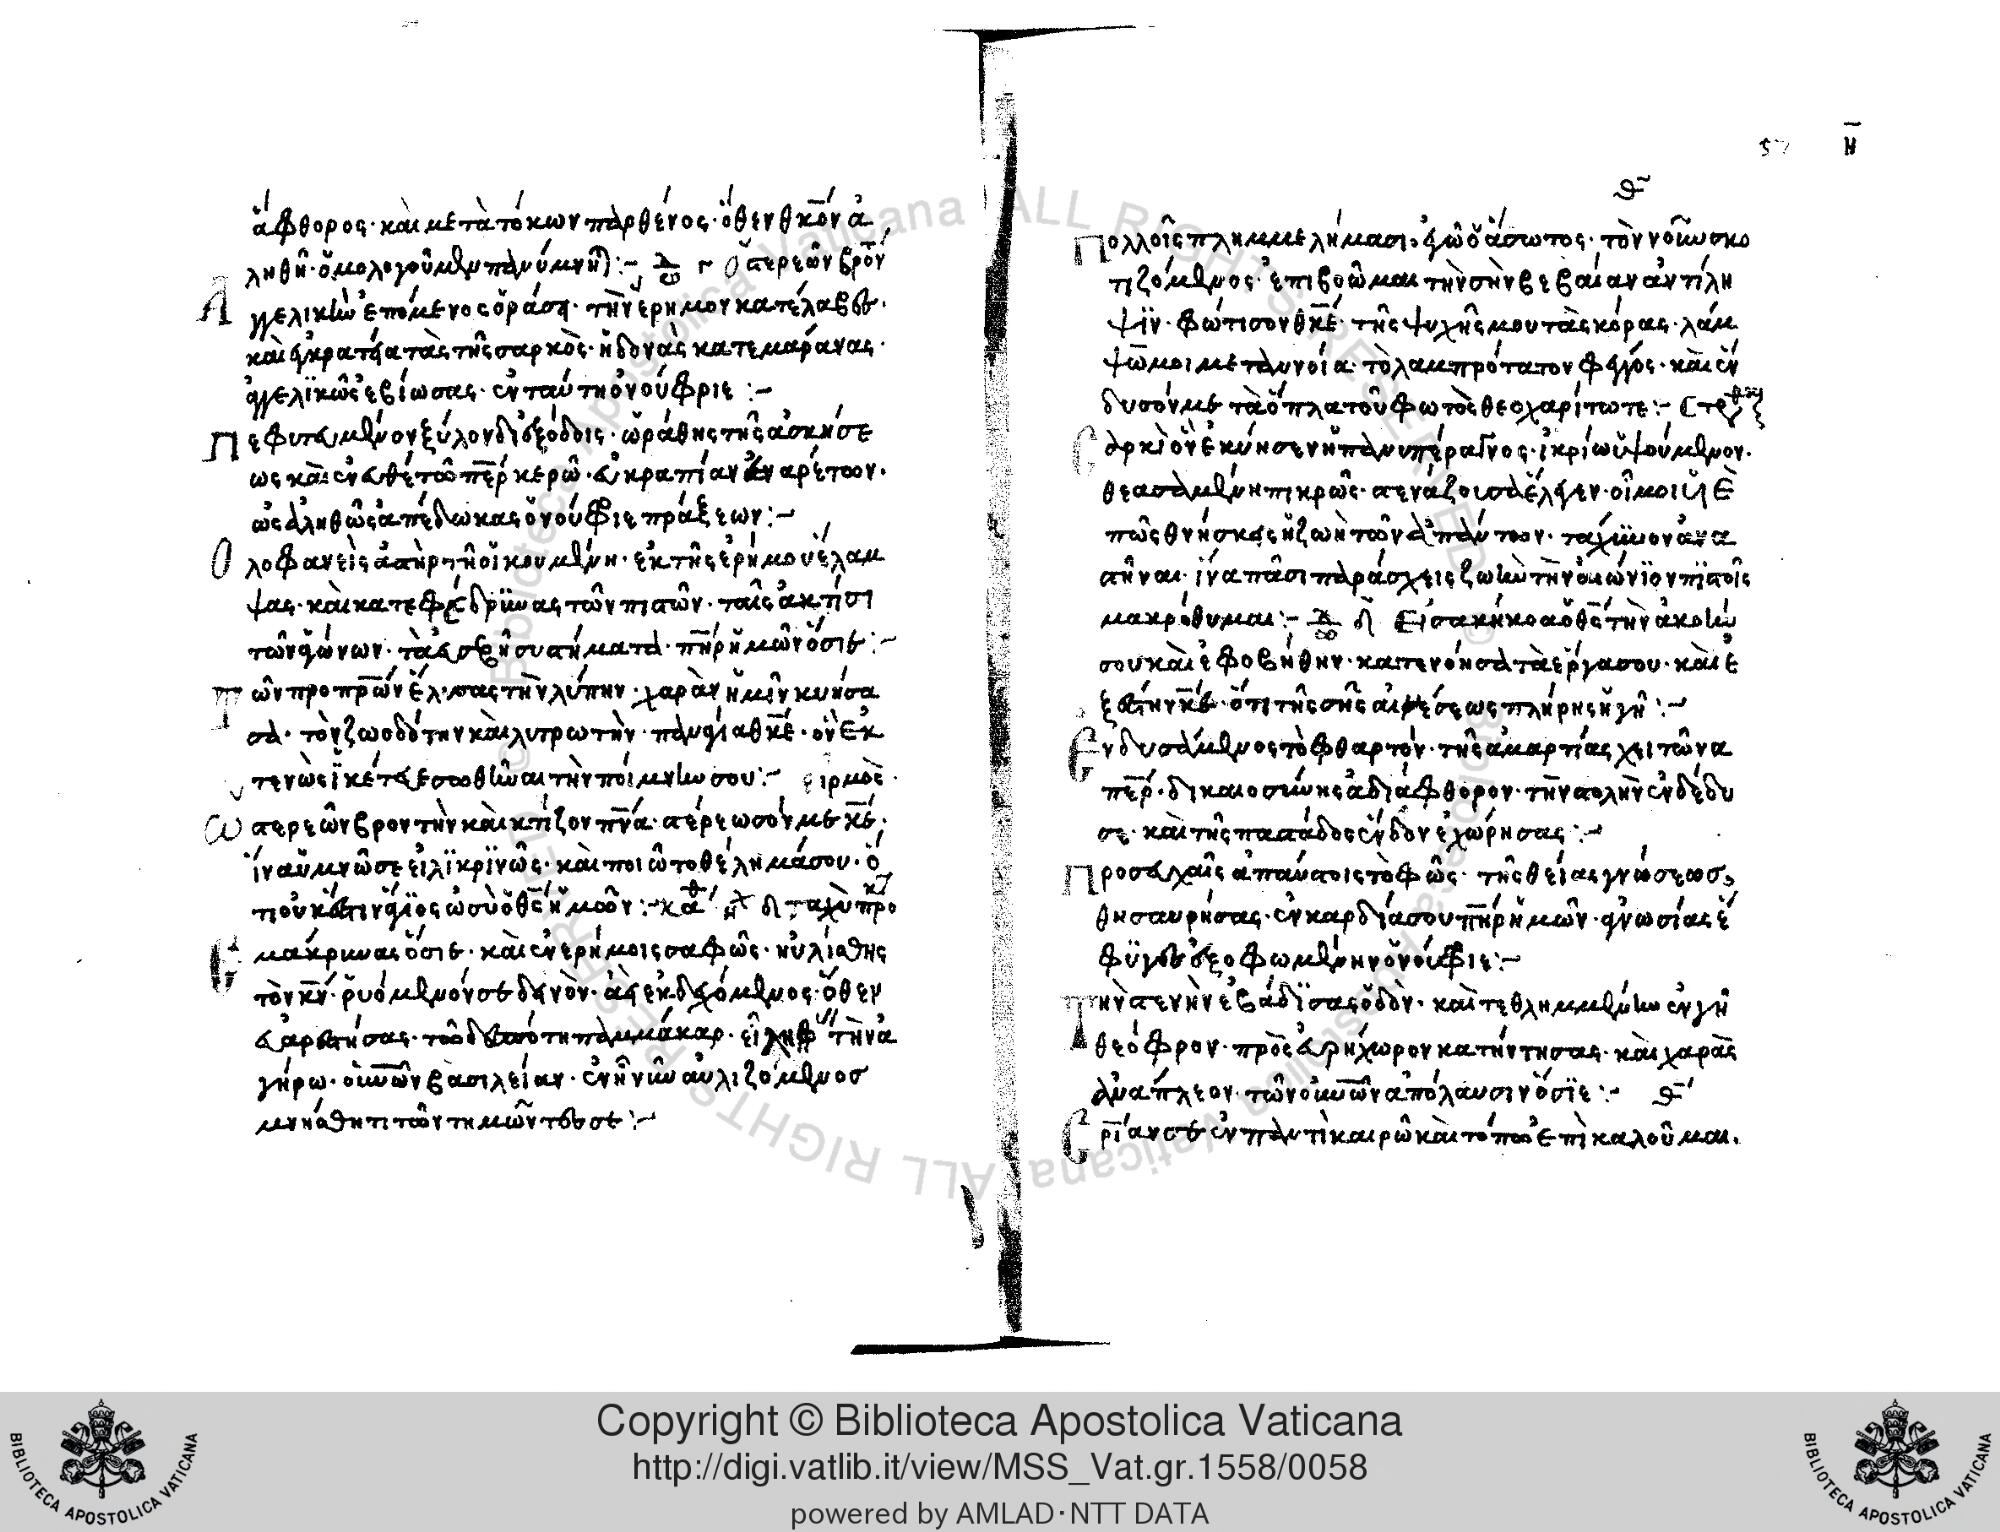 ἄφθορος· καὶ μετὰ τόκων παρθένος· ὅθεν θκον ἀ
ληθῆ· ὁμολογοῦμεν πανύμνη
γγελικὴν ἑπόμενος ὁράσει· τὴν ἔρημον κατέλαβες·
καὶ ἐγκρατεία τὰς τῆς σαρκὸς· ἡδονὰς κατεμάρανας·
ἀγγελϊκῶς ἐβίωσας· ἐν ταύτη ὀνούφριε :–
Πεφυτευμένον ξύλον διεξόδοις· ὡράθης τῆς ἀσκήσε
ως καὶ
ὡς ἀληθῶς ἀπέδωκας ὀνούφριε πράξεων :–
Ὁλοφανεὶς ἀστὴρ τῆ οἰκουμένη· ἐκ τῆς ἐρήμου ἔλαμ
ψας· καὶ κατεφαίδρυνας τῶν πιστῶν· ταῖς ἀκτῖσι
τῶν ἀγώνων· τὰ συστήματα πηρ ἡμῶν ὅσιε :–
Τῶν προπρων λύσας τὴν λύπην· χαρὰν ἡμῖν κυήσα
σα· τὸν ζωοδότην καὶ λυτρωτὴν· παναγία θκε· ὃν ἐκ
τενῶς ἱκέτευε σωθῆναι τὴν ποίμνην σου :– εἱρμὸς
Ὁ στερεῶν βροντὴν καὶ κτίζον πνα· στερέωσόν με κε·
ἵνα ὑμνῶ σε εἰλϊκρϊνῶς· καὶ ποιῶ τὸ θέλημά σου· ὅ
τι οὐκ ἔστιν ἅγϊος ὡς σὺ ὁ θς ἡμῶν :–
Ἐμάκρυνας ὅσιε· καὶ ἐν ἐρήμοις σαφῶς· ηὐλίσθης
τὸν κν· ῥυόμενόν σε δεινὸν· ἀεὶ ἐκδεχόμενος· ὅθεν
εὐαρεστήσας· τῶ δεσπότη παμμάκαρ· εἴληφας τὴν ἀ
γήρω· βασιλείαν· ἐν ἧ νῦν αὐλιζόμενος
μνήσθητι τῶν τιμώντων σε :–
57 Η
Πολλοῖς πλημμελήμασι, ἐγὼ ὁ ἄσωτος· τὸν νοῦν σκο
τιζόμενος· ἐπιβοῶμαι τὴν σὴν βεβαίαν ἀντίλη
ψϊν· φώτισον θκε· τῆς ψυχῆς μου τὰς κόρας· λάμ
ψον μοι μετανοία· τὸ λαμπρότατον φέγγος· καὶ ἔν
δυσόν με τὰ ὅπλα τοῦ φωτὸς θεοχαρίτωτε :–
Σαρκὶ ὃν ἐκύησεν ἡ παν ὑπέραγνος· ἰκρίω ὑψούμενον·
θεασαμένη πικρῶς· στενάζουσα ἔλεγεν· οἴμοι υἱὲ
πῶς θνήσκεις ἡ ζωὴ τῶν ἁπάντων· ταχὺνον ἀνα
στῆναι· ἵνα πᾶσι παράσχεις ζωὴν τὴν αἰώνϊον πϊστοῖς
μακρόθυμαι :– Εἰσακήκοα ὁ θς τὴν ἀκοὴν
σου καὶ ἐφοβήθην· κατενόησα τὰ ἔργα σου· καὶ ἐ
ξέστην κε· ὅτι τῆς σῆς αἰνέσεως πλήρης ἡ γῆ :–
Ἐνδυσάμενος τὸ φθαρτὸν· τῆς ἁμαρτίας χειτῶνα
περ· δικαιοσύνης ἀδιάφθορον· τὴν στολὴν ἐνδέδυ
σε· καὶ τῆς παστάδος ἔνδον ἐχώρησας :–
Προσευχαῖς ἀπαύστοις τὸ φῶς· τῆς θείας γνώσεως,
θησαυρήσας· ἐν καρδία σου πηρ ἡμῶν· ἀγνωσίας ἔ
φϋγες ζοφωμένην ὀνούφριε :–
Τὴν στενὴν ἐβάδϊσας ὁδὸν· καὶ τεθλημμένην ἐν γῆ
θεόφρον· πρὸς εὐρήχωρον κατήντησας· καὶ χαρᾶς
ἀνάπλεον· τῶν οὐνων ἀπόλαυσιν ὅσϊε :–
Ἐ αν σε ἐν παντὶ καιρῶ καὶ τόπω ἐπὶκαλοῦμαι,
Copyright © Biblioteca Apostolica Vaticana
http://digi.vatlib.it/view/MSS_Vat.gr.1558/0058
powered by AMLAD·NTT DATA
BIBLIOTECA APOSTOLICA VATICANA
BIBLIOTECA APOSTOLICA VATICANA